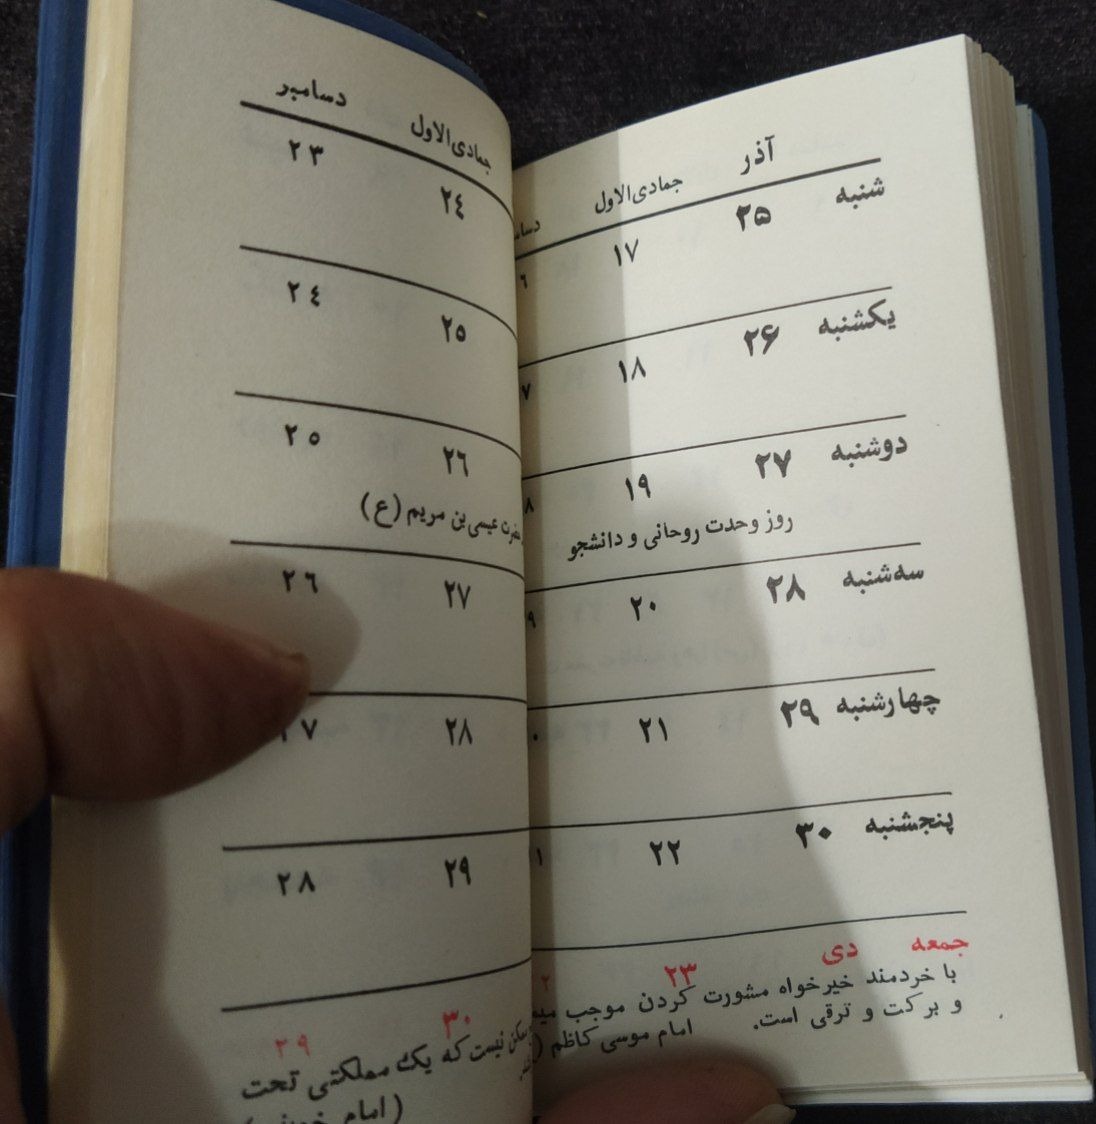 آذر جمادی‌الاول
شنبه ۲۵ ۱۷ ٦
یکشنبه ۲۶ ۱۸ ۷
دوشنبه ۲۷ ۱۹ ۸
روز وحدت روحانی و دانشجو
سه‌شنبه ۲۸ ۲۰ ۹
چهارشنبه ۲۹ ۲۱
پنجشنبه ۳۰ ۲۲
جمعه دی ۲۳
با خردمند خیرخواه مشورت کردن موجب
و برکت و ترقی است. امام موسی کاظم
جمادی‌الاول دسامبر
۲٤ ۲۳
۲۵ ۲٤
۲٦ ۲٥
حضرت عیسی‌بن مریم (ع)
۲۷ ۲٦
۲۸ ۷
۲۹ ۲۸
۳۰ ۲۹
نیست که یک مملکتی تحت
(امام